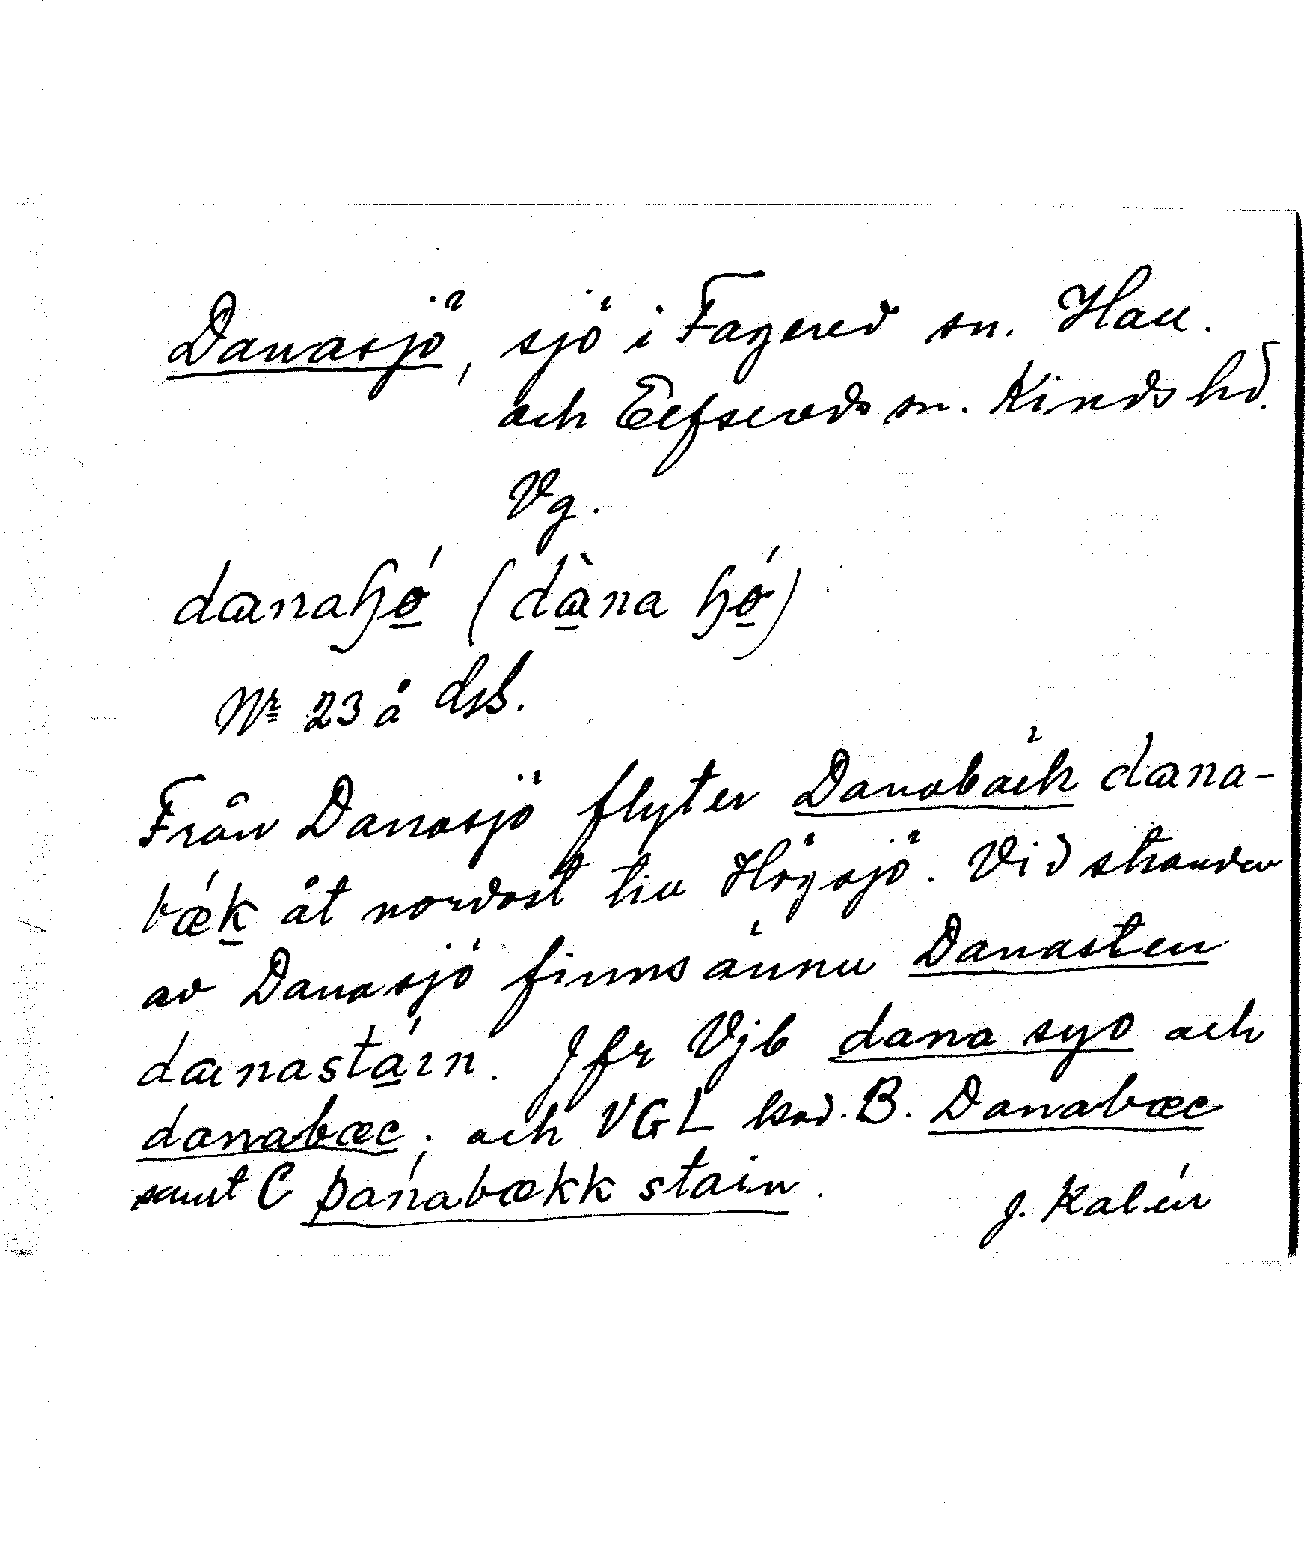 Danasjö, sjö i Fagered sn. Hall.
och Elfsereds sn. Kinds hd.
Vg.
danaɧǿ (dàna ɧǿ)
Nr 23 å dsb.
Från Danasjö flyter Danabäck dana-
bǽk åt nordost till Högsjö. Vid stranden
av Danasjö finns ännu Danasten
danastáin. Jfr Vjb dana syo och
danabæc; och VGL kod. B. Danabæc
samt C þanabækk stain.
J. Kalén